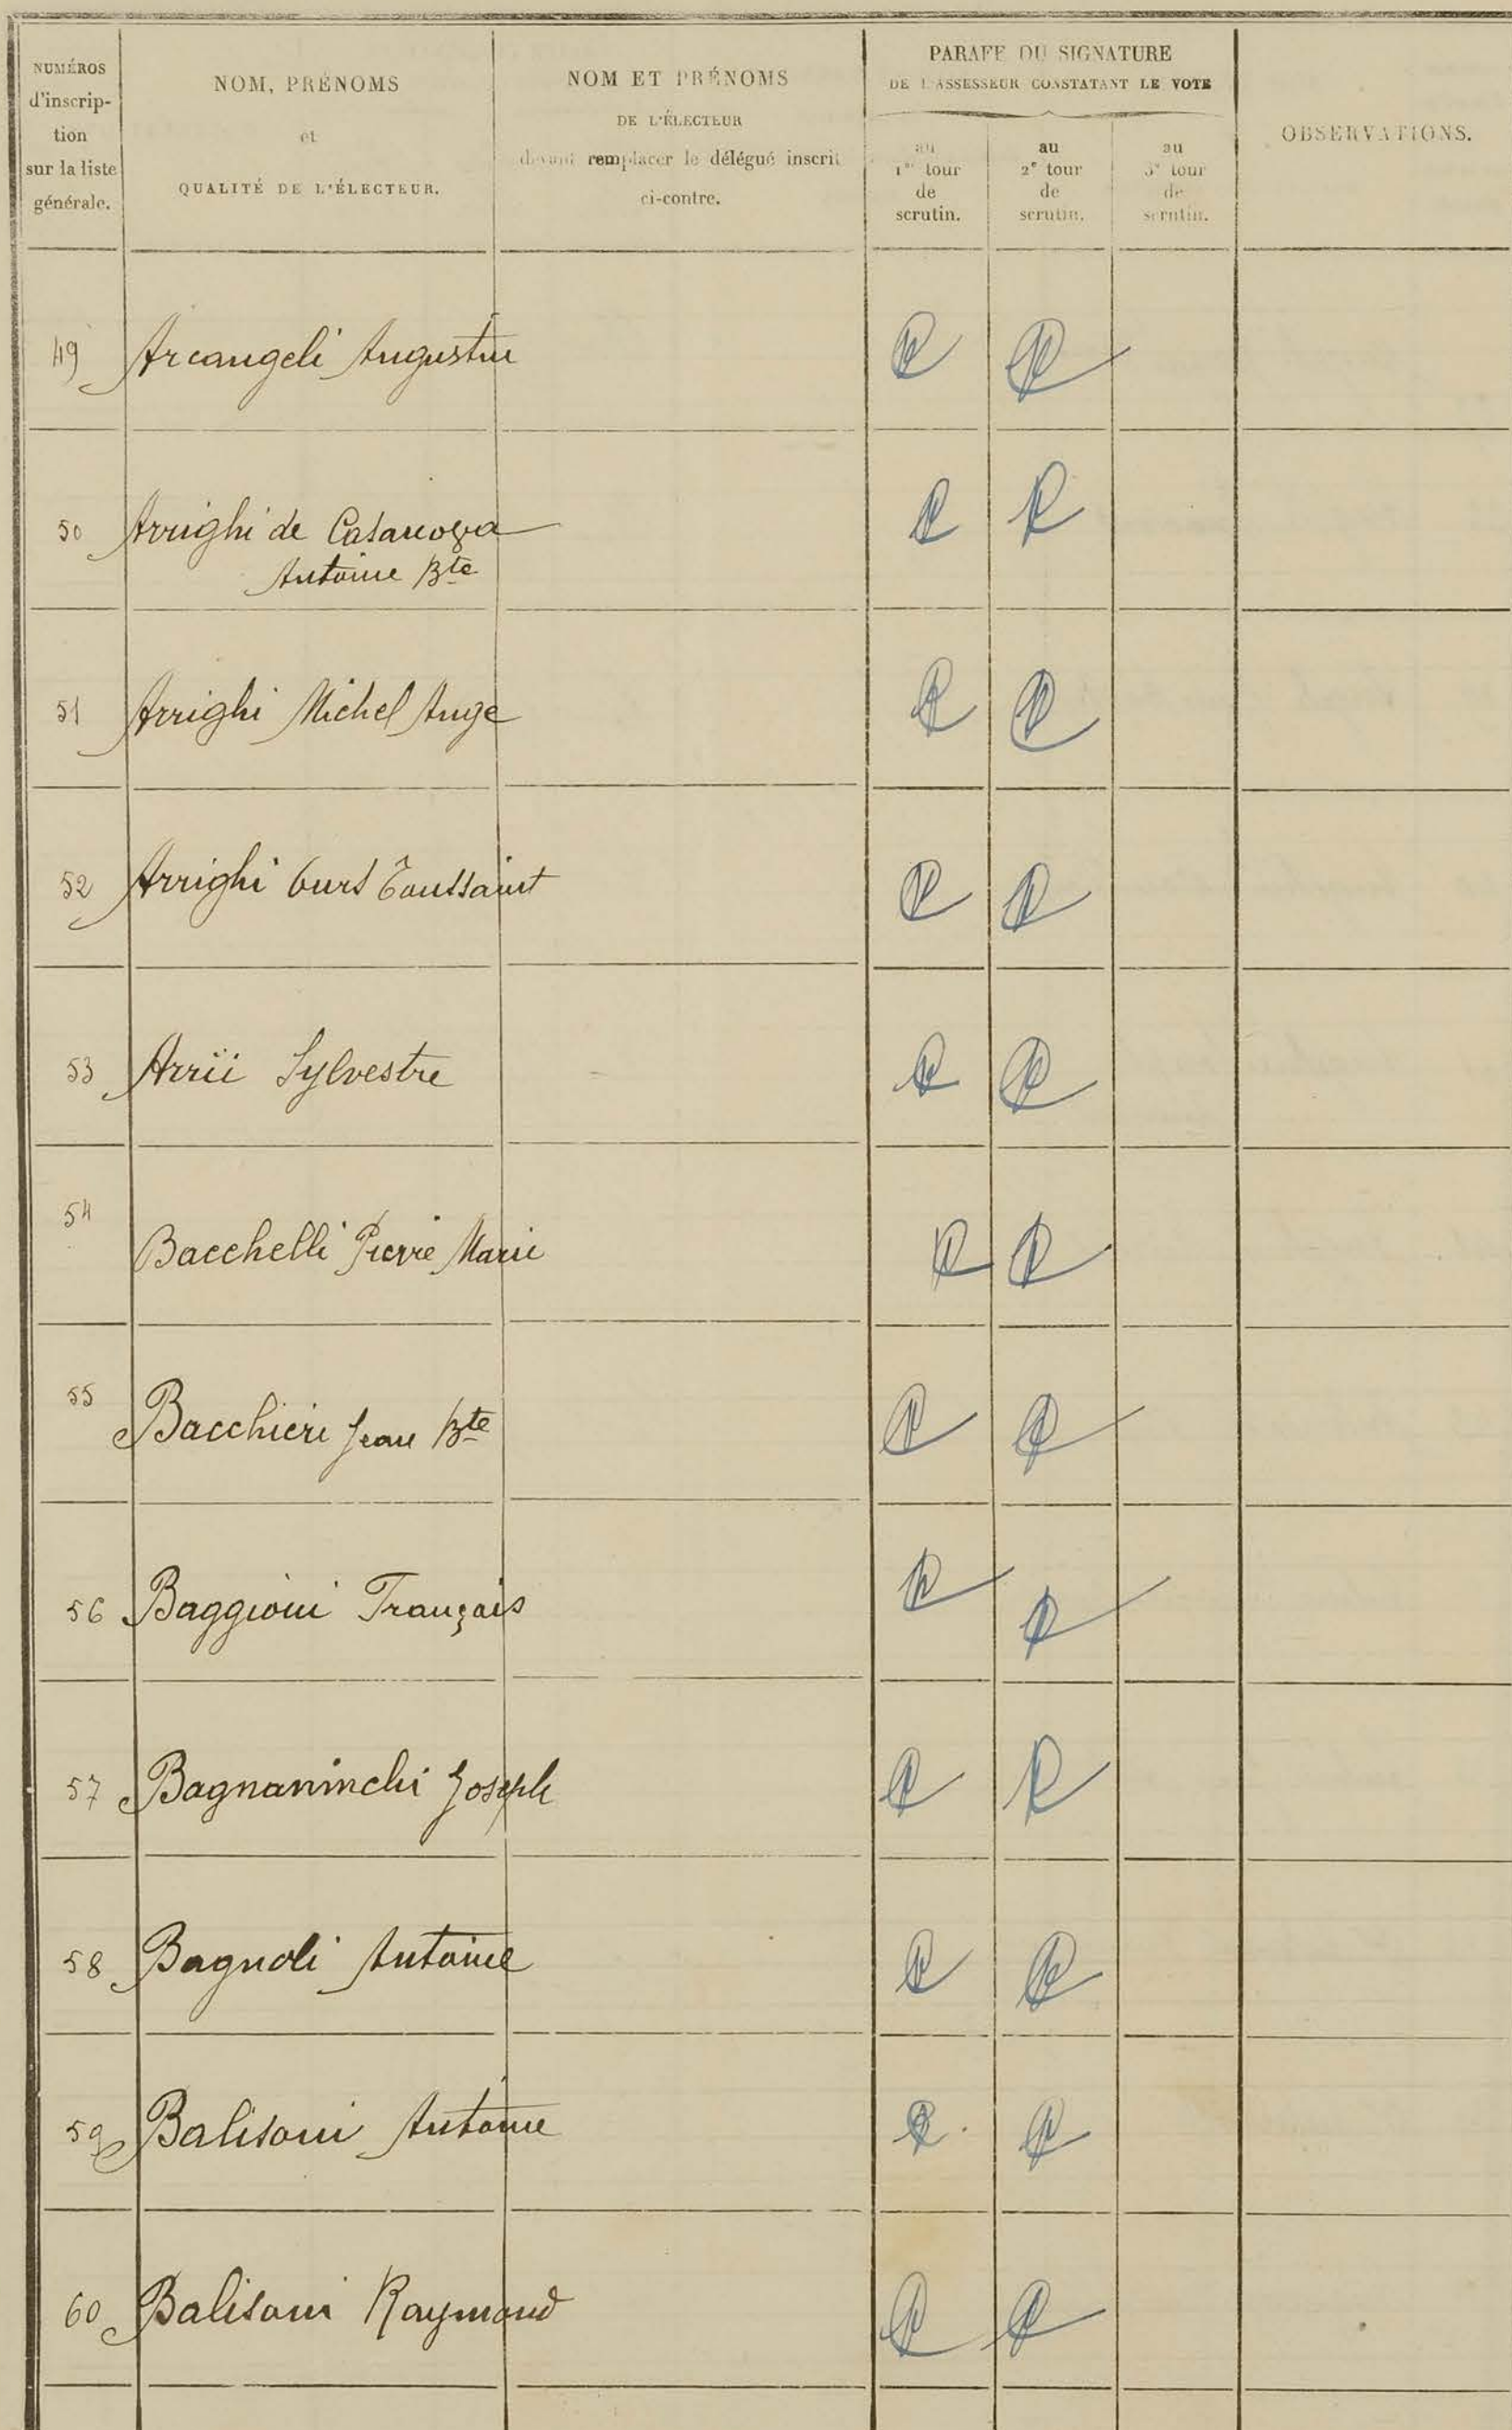 NUMÉROS
d'inscrip-
tion
sur la liste
générale.
NOM, PRÉNOMS
et
QUALITÉ DE L'ÉLECTEUR.
NOM ET PRÉNOMS
DE L'ÉLECTEUR
devant remplacer le délégué inscrit
ci-contre.
PARAFE OU SIGNATURE
DE L'ASSESSEUR CONSTATANT LE VOTE
au
1er tour
de
scrutin.
au
2e tour
de
scrutin.
au
3e tour
de
scrutin.
OBSERVATIONS.
49 Arcangeli Augustin
50 Arrighi de Casanova
Antoine Bte
51 Arrighi Michel Ange
52 Arrighi Ours Toussaint
53 Arrii Sylvestre
54 Bacchelli Pierre Marie
55 Bacchieri Jean Bte
56 Baggioni François
57 Bagnaninchi Joseph
58 Bagnoli Antoine
59 Balisoni Antoine
60 Balisoni Raymond